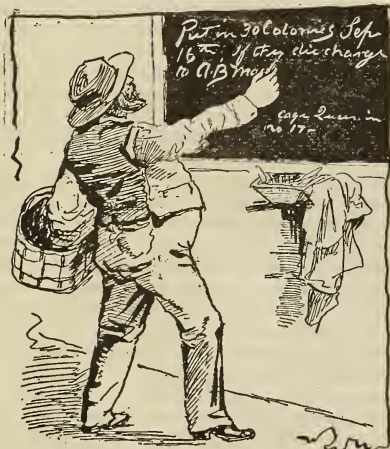 Put in 30 Colonies Sep
16th, if they discharge
to A.B
Cage Queen in
no 17-